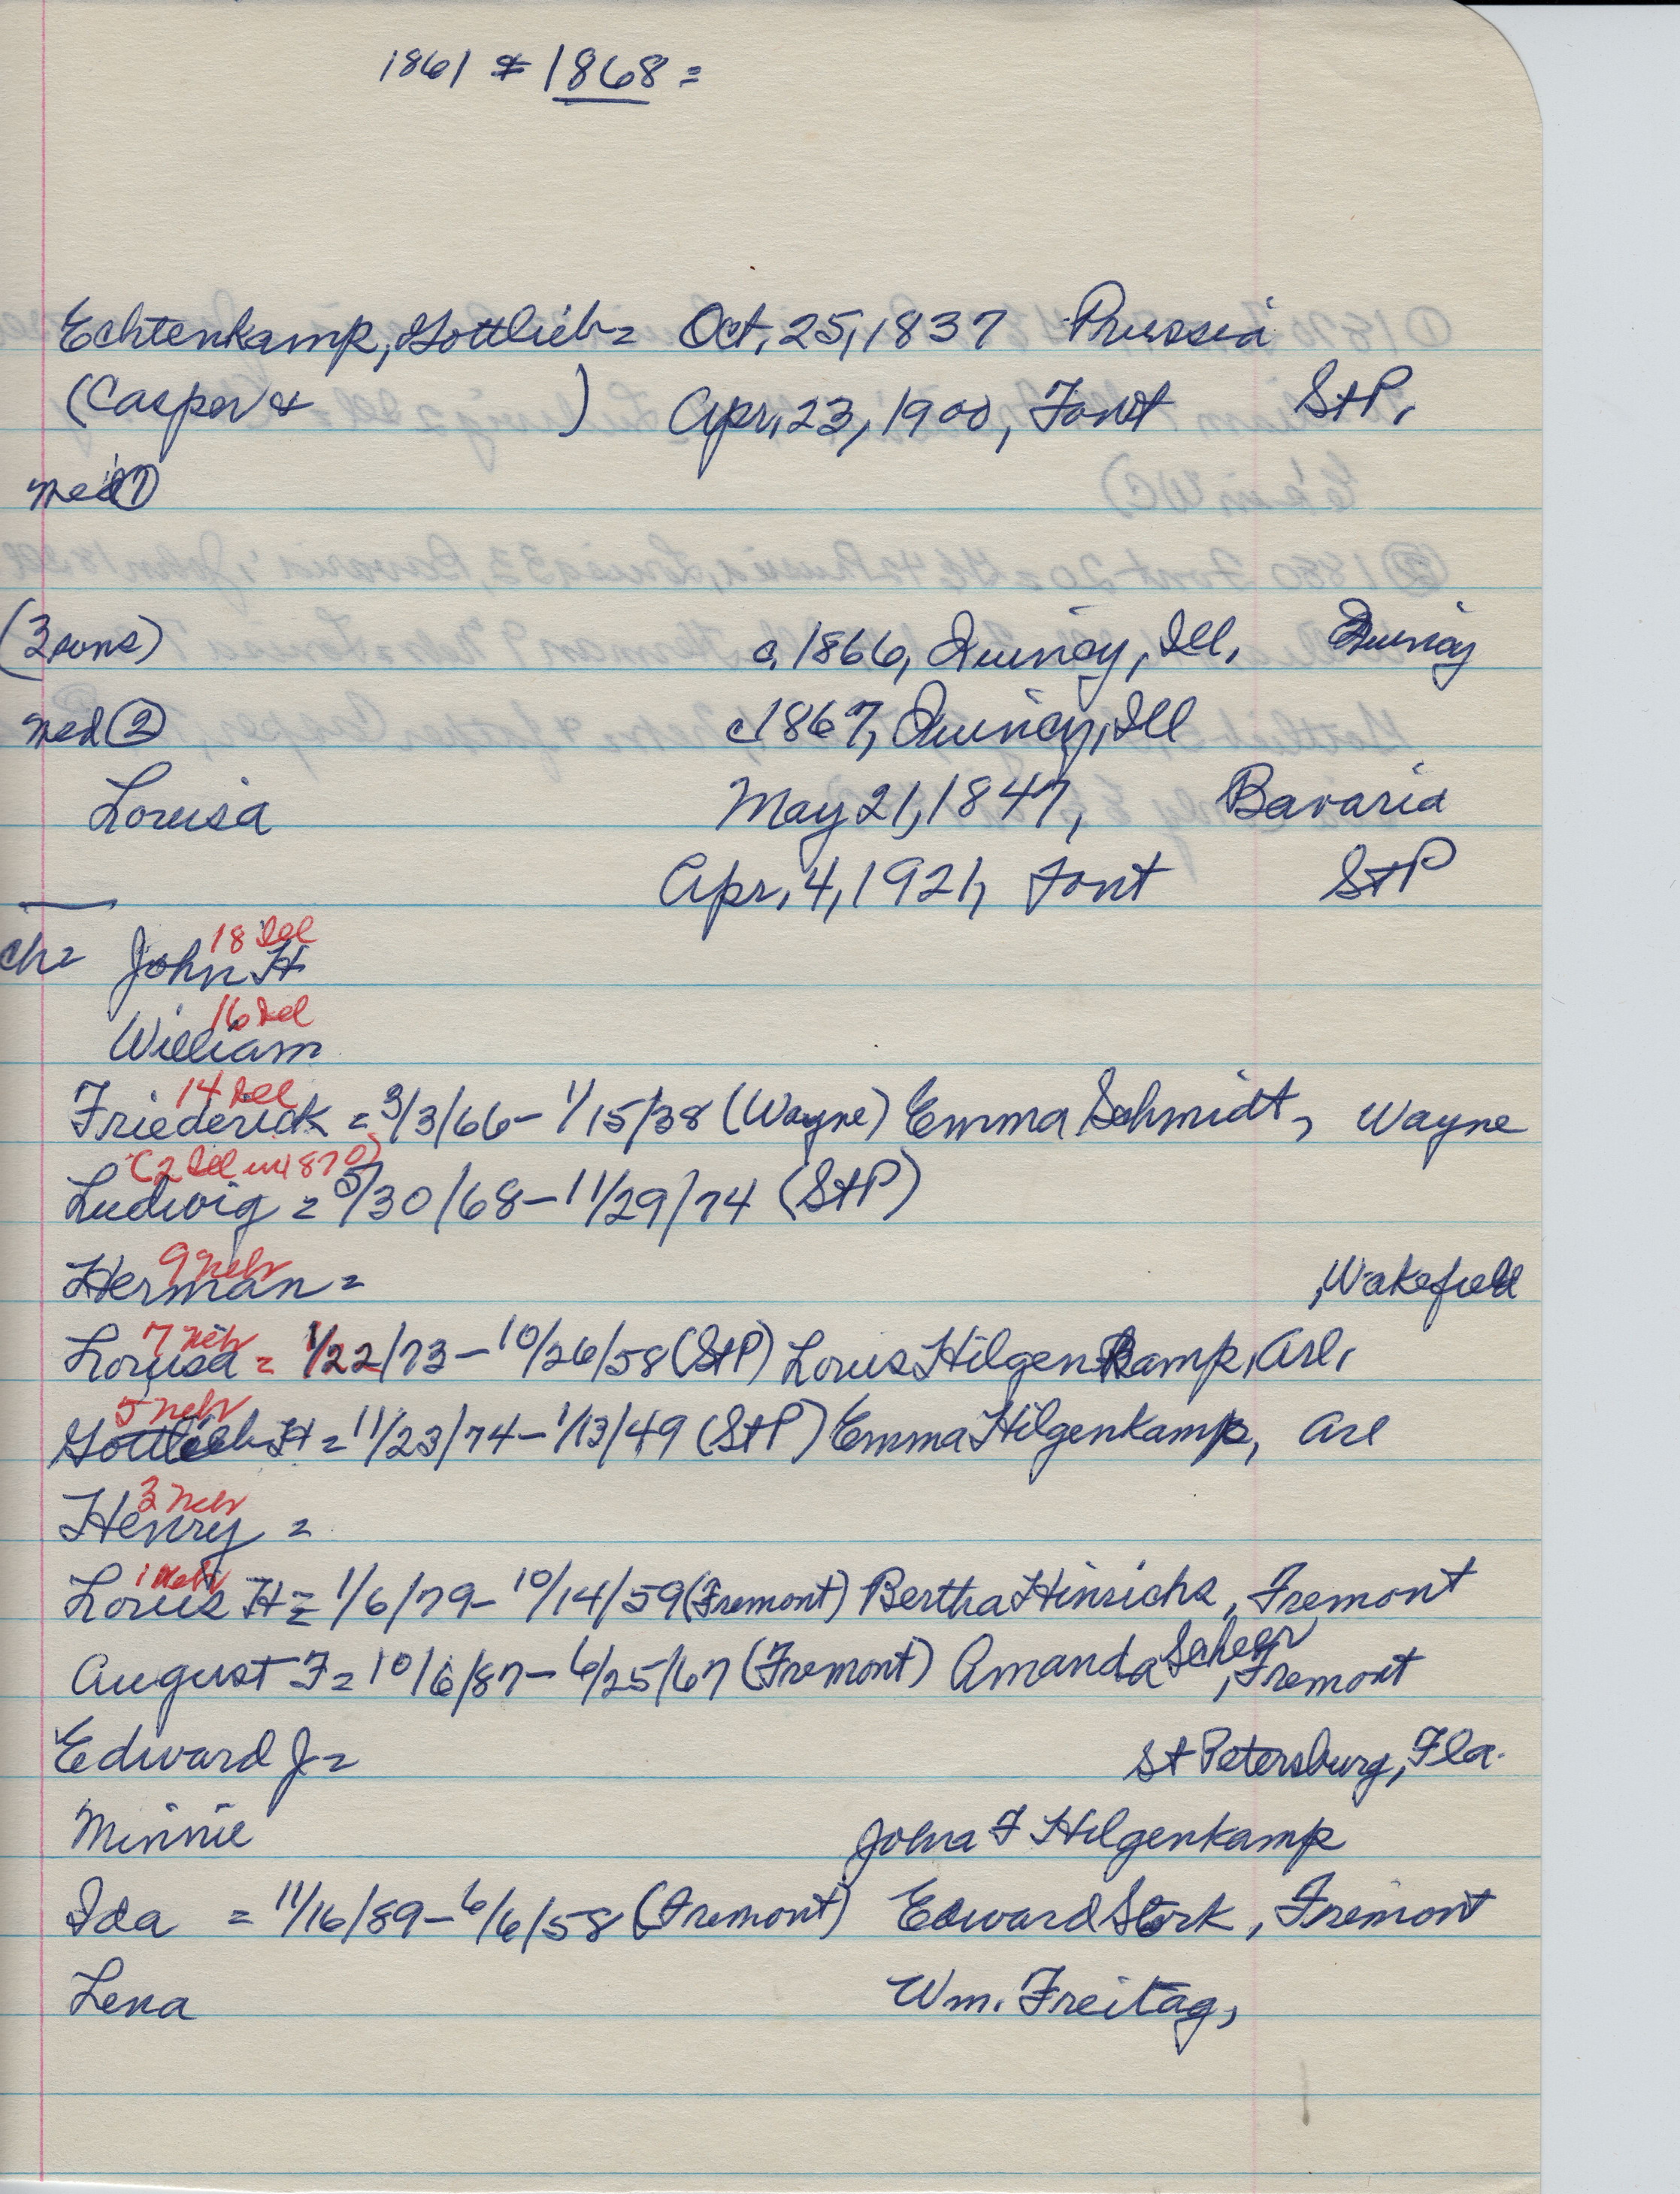 1861 * 1868 =
Echtenkamp, Gottlieb = Oct, 25, 1837 Prussia
(Casper & ) Apr, 23, 1900, Font StP,
med ①
(3 sons) c, 1866, Quincy, Ill, Quincy
med ② c1867, Quincy, Ill
Louisa May 21, 1847, Bavaria
Apr, 4, 1921, Font StP
18 Ill
ch = John H
16 Ill
William
14 Ill
Friederick = 3/3/66 - 1/15/38 (Wayne) Emma Schmidt, Wayne
(2 Ill in 1870)
Ludwig = 5/30/68 - 11/29/74 (StP)
9 Neb
Herman = , Wakefield
7 Neb
Louisa = 1/22/73 - 10/26/58 (StP) Louis Hilgenkamp, Arl,
5 Neb
Gottlieb H = 11/23/74 - 1/13/49 (StP) Emma Hilgenkamp, Arl
3 Neb
Henry =
1 Neb
Louis H = 1/6/79 - 10/14/59 (Fremont) Bertha Hinrichs, Fremont
August F = 10/6/87 - 6/25/67 (Fremont) Amanda Scheer, Fremont
Edward J = St Petersburg, Fla.
Minnie John F Hilgenkamp
Ida = 11/16/89 - 6/6/58 (Fremont) Edward Stork, Fremont
Lena Wm. Freitag,